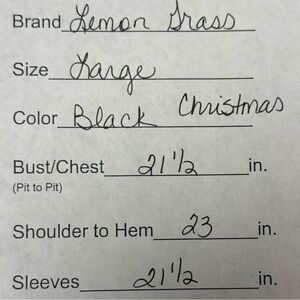 Brand Lemon Grass
Size Large
Color Black Christmas
Bust/Chest 21 1/2 in.
(Pit to Pit)
Shoulder to Hem 23 in.
Sleeves 21 1/2 in.